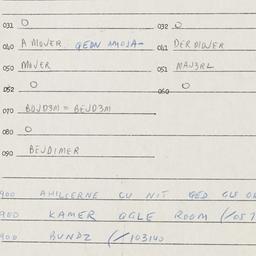 031 O 032 O
040 A MOVER GEDN MMOJA- 041 DER DIOWER
050 MOVER 051 MAJ3RL
052 O 060 O
070 BOVD3M = BEVD3M
080 O
090 BEVDIMER
900 AHILIERNE CU NIT GED GLE
900 KAMER GGLE ROOM (/05
900 BUNDZ (/103140